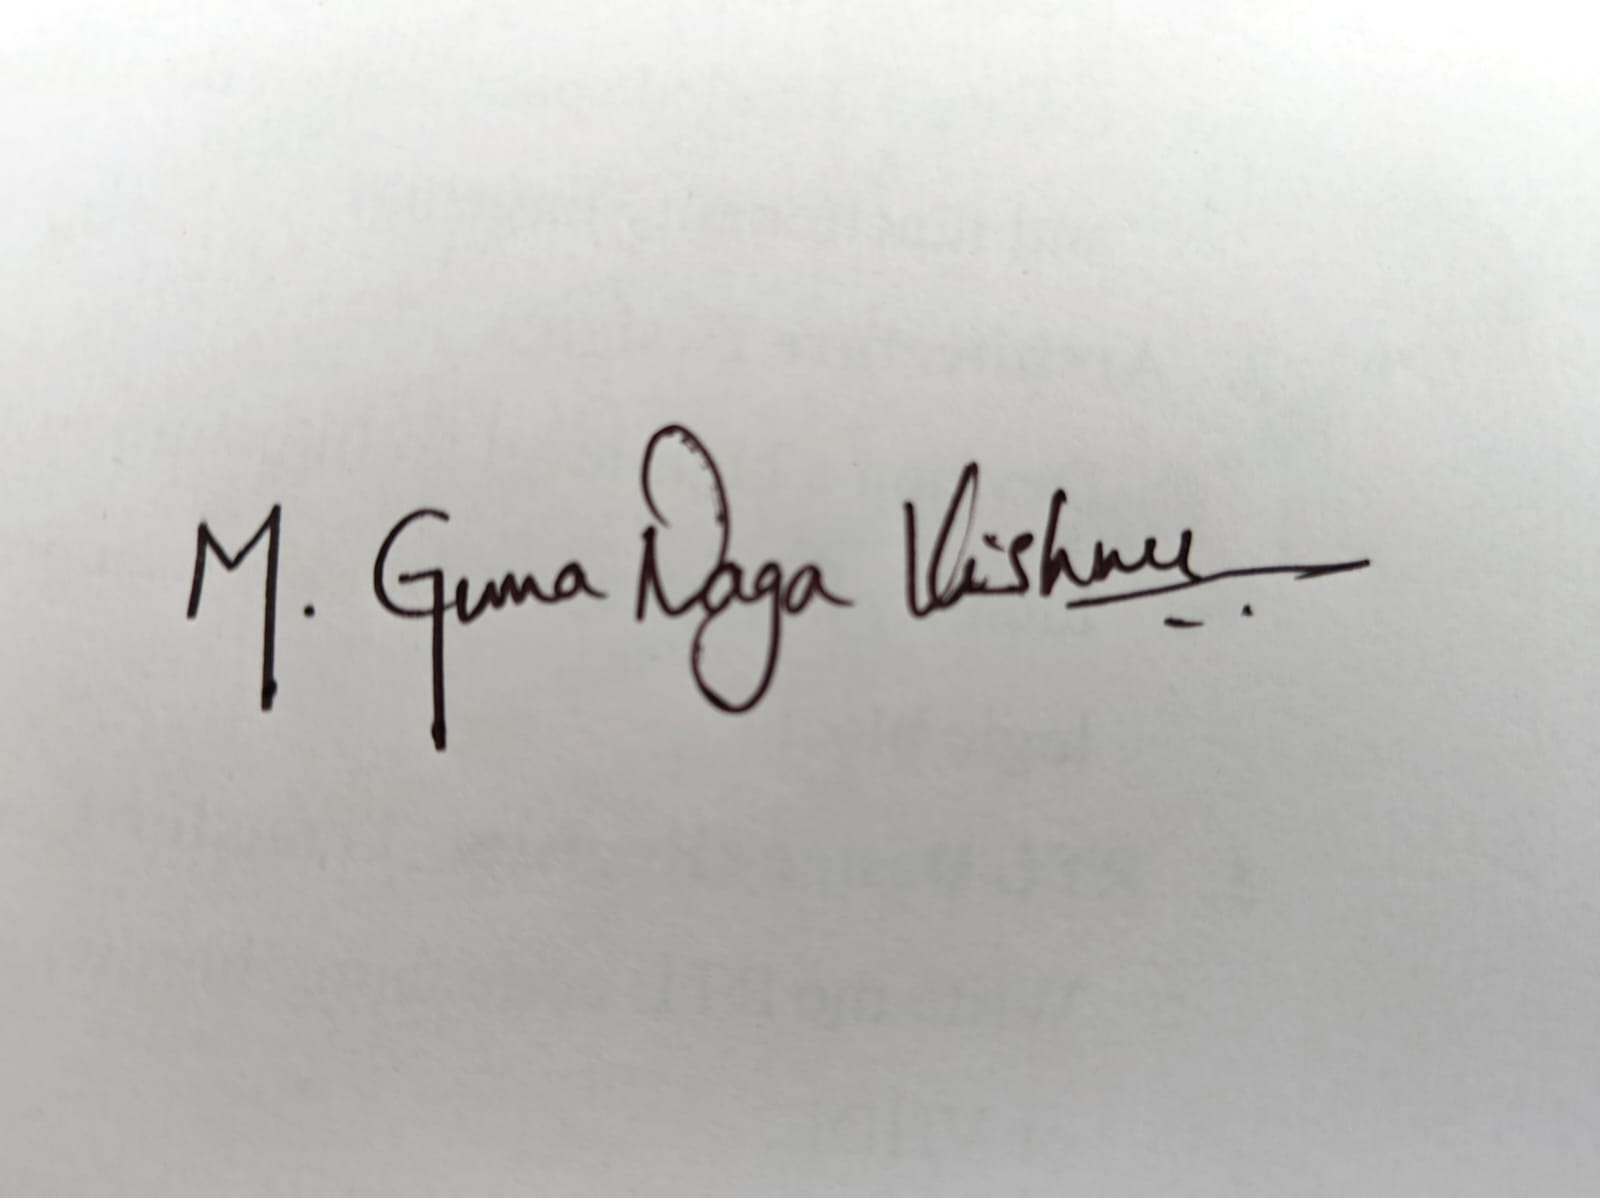 M. Guna Naga Vishnu